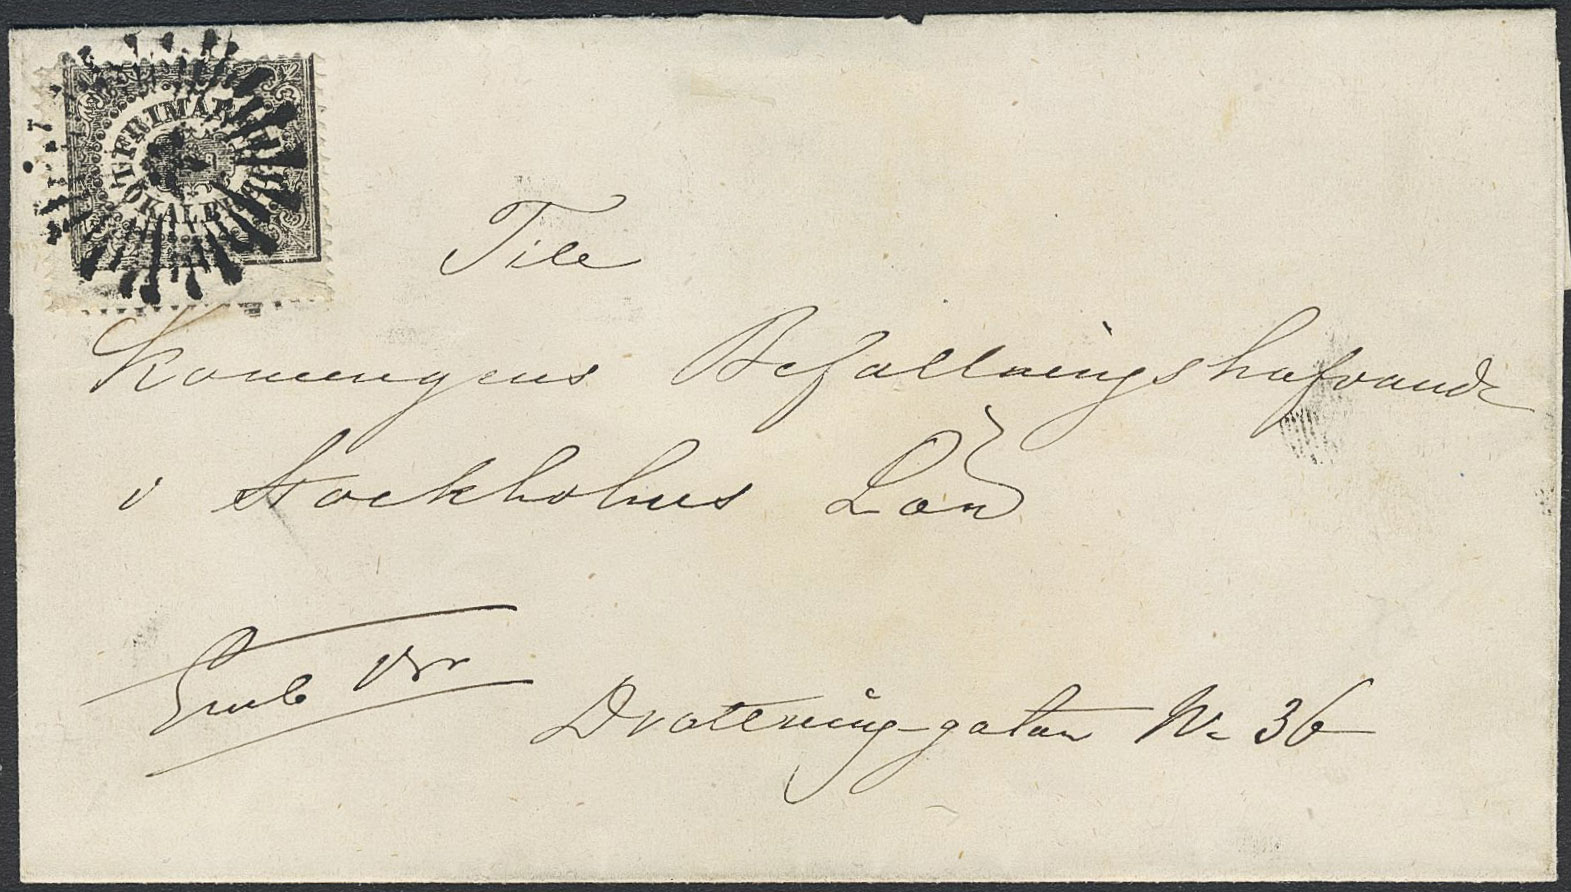 FRIMÄRKE FÖR LOKALBREF
Till
Konungens Befallningshafvande
i Stockholms Län
Drottning-gatan No 36